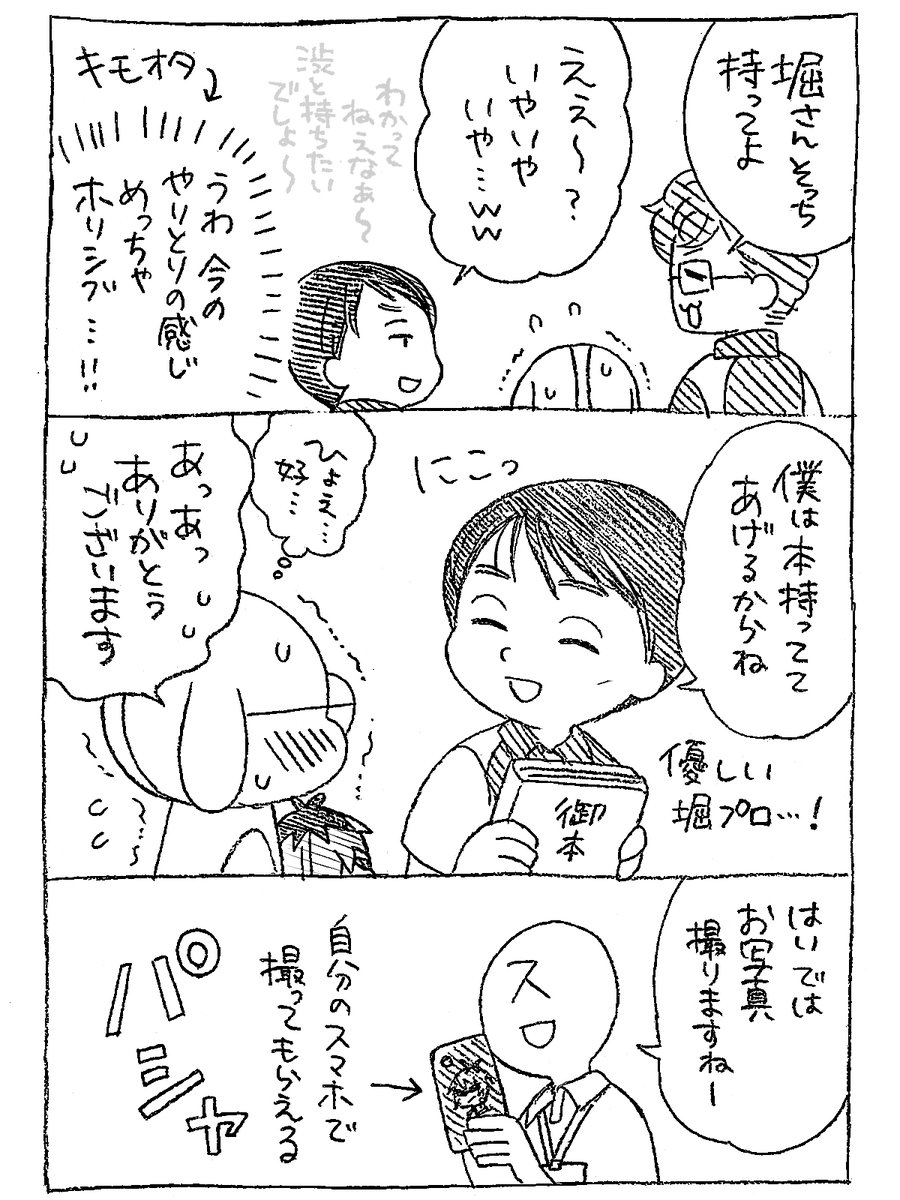 堀さんそっち
持ってよ
ええ〜?
いやいや
いや…ww
わかって
ねえなぁ〜
渋と持ちたい
でしょ〜
キモオタ
うわ 今の
やりとりの感じ
めっちゃ
ホリシブ…!!
僕は本持ってて
あげるからね
にこっ
優しい
堀プロ…!
御
本
ひょえ…
好…
あっあっ
ありがとう
ございます
はいでは
お写真
撮りますねー
ス
自分のスマホで
撮ってもらえる
パシャ